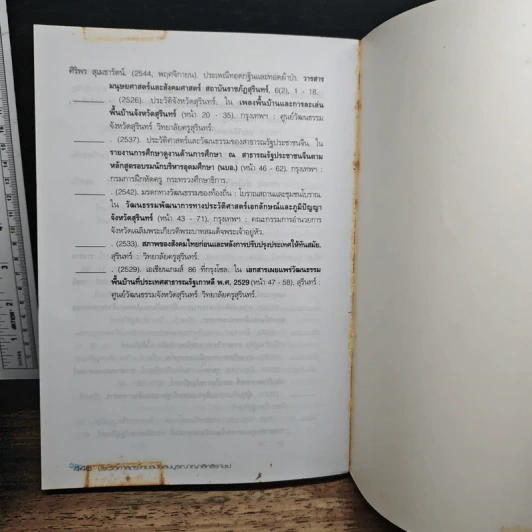 ศิริพร สุเมธารัตน์. (2544, พฤศจิกายน). ประเพณีทอดกฐินและทอดผ้าป่า. วารสาร
มนุษยศาสตร์และสังคมศาสตร์ สถาบันราชภัฏสุรินทร์. 6(2), 1 - 18.
________ . (2526). ประวัติจังหวัดสุรินทร์. ใน เพลงพื้นบ้านและการละเล่น
พื้นบ้านจังหวัดสุรินทร์ (หน้า 20 - 35). กรุงเทพฯ : ศูนย์วัฒนธรรม
จังหวัดสุรินทร์ วิทยาลัยครูสุรินทร์.
________ . (2537). ประวัติศาสตร์และวัฒนธรรมของสาธารณรัฐประชาชนจีน. ใน
รายงานการศึกษาดูงานด้านการศึกษา ณ สาธารณรัฐประชาชนจีนตาม
หลักสูตรอบรมนักบริหารอุดมศึกษา (นบอ.) (หน้า 46 - 62). กรุงเทพฯ :
กรมการฝึกหัดครู กระทรวงศึกษาธิการ.
________ . (2542). มรดกทางวัฒนธรรมของท้องถิ่น : โบราณสถานและชุมชนโบราณ.
ใน วัฒนธรรมพัฒนาการทางประวัติศาสตร์เอกลักษณ์และภูมิปัญญา
จังหวัดสุรินทร์ (หน้า 43 - 71). กรุงเทพฯ : คณะกรรมการอำนวยการ
จังหวัดเฉลิมพระเกียรติพระบาทสมเด็จพระเจ้าอยู่หัว.
________ . (2533). สภาพของสังคมไทยก่อนและหลังการปรับปรุงประเทศให้ทันสมัย.
สุรินทร์ : วิทยาลัยครูสุรินทร์.
________ . (2529). เอเชียนเกมส์ 86 ที่กรุงโซล. ใน เอกสารเผยแพร่วัฒนธรรม
พื้นบ้านที่ประเทศสาธารณรัฐเกาหลี พ.ศ. 2529 (หน้า 47 - 58). สุรินทร์ :
ศูนย์วัฒนธรรมจังหวัดสุรินทร์ วิทยาลัยครูสุรินทร์.